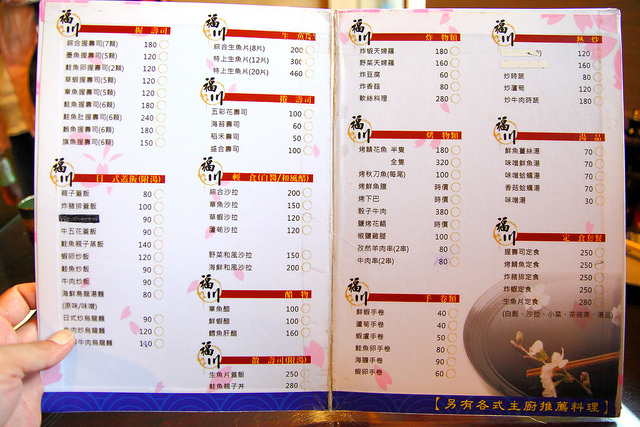 福川
握壽司
綜合握壽司(7顆) 180
墨魚握壽司(5顆) 120
鮭魚卵握壽司(2顆) 120
草蝦握壽司(5顆) 120
章魚握壽司(5顆) 120
鮭魚握壽司(6顆) 180
鮭魚肚握壽司(6顆) 240
鮪魚握壽司(6顆) 180
旗魚握壽司(6顆) 150
福川
日式蓋飯(附湯)
親子蓋飯 80
炸豬排蓋飯 100
90
牛五花蓋飯 90
鮭魚親子蒸飯 140
蝦卵炒飯 120
鮭魚炒飯 90
牛肉炒飯 90
海鮮烏龍湯麵 80
(原味/味噌)
日式炒烏龍麵 90
肉炒烏龍麵 120
牛肉炒烏龍麵
福川
生魚片
綜合生魚片(8片) 200
特上生魚片(12片) 300
特上生魚片(20片) 460
福川
捲壽司
五彩花壽司 100
海苔壽司 60
稻禾壽司 50
盛合壽司 100
福川
輕食(白醬/和風醋)
綜合沙拉 200
章魚沙拉 150
草蝦沙拉 120
蘆筍沙拉 120
野菜和風沙拉 150
海鮮和風沙拉 200
福川
醋物
章魚醋 100
鮮蝦醋 100
鱈魚肝醋 160
福川
散壽司(附湯)
生魚片蓋飯 250
鮭魚親子丼 280
福川
炸物類
炸蝦天婦羅 180
野菜天婦羅 160
炸豆腐 60
炸香菇 80
軟絲料理 280
福川
烤物類
烤鯖花魚 半隻 180
全隻 320
烤秋刀魚(每尾) 100
烤鮮魚腹 時價
烤下巴 時價
骰子牛肉 380
鹽烤花鯧 時價
椒鹽雞腿 100
孜然羊肉串(2串) 80
牛肉串(2串) 80
福川
手卷類
鮮蝦手卷 40
蘆筍手卷 40
蝦蘆手卷 50
鮭魚卵手卷 80
海膽手卷 90
蝦卵手卷 60
福川
熱炒
120
160
炒時蔬 80
炒蘆筍 120
炒牛肉時蔬 180
福川
湯品
鮮魚薑絲湯 70
味噌鮮魚湯 70
味噌蛤蠣湯 70
香菇蛤蠣湯 70
味噌湯 30
福川
定食套餐
握壽司定食 250
烤鯖魚定食 250
炸豬排定食 250
炸蝦定食 250
生魚片定食 280
(白飯、沙拉、小菜、茶碗蒸、湯品)
【另有各式主廚推薦料理】